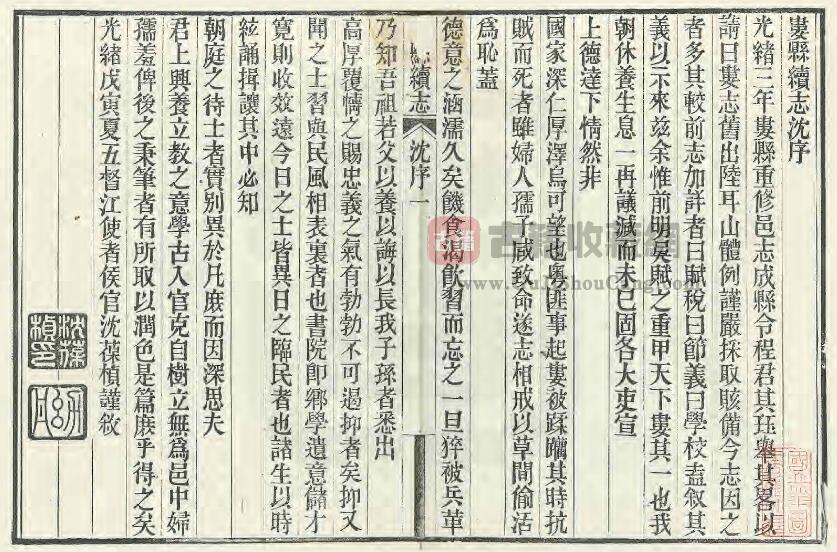 婁縣續志沈序
光緒三年婁縣重修邑志成縣令程君其珏舉其畧以
請曰婁志舊出陸耳山體例謹嚴採取賅備今志因之
者多其較前志加詳者曰賦稅曰節義曰學校盍敘其
義以示來茲余惟前明吳賦之重甲天下婁其一也我
朝休養生息一再議減而未已固各大吏宣
上德達下情然非
國家深仁厚澤烏可望也粵匪事起婁被蹂躪其時抗
賊而死者雖婦人孺子咸致命遂志相戒以草間偷活
爲恥蓋
德意之涵濡久矣饑食渴飲習而忘之一旦猝被兵革
續志 沈序 一
乃知吾祖若父以養以誨以長我子孫者悉出
高厚覆幬之賜忠義之氣有勃勃不可遏抑者矣抑又
聞之士習與民風相表裏者也書院即鄉學遺意儲才
寬則收效遠今日之士皆異日之臨民者也諸生以時
絃誦揖讓其中必知
朝庭之待士者實別異於凡庶而因深思夫
君上興養立教之意學古入官克自樹立無爲邑中婦
孺羞俾後之秉筆者有所取以潤色是篇庶乎得之矣
光緒戊寅夏五督江使者侯官沈葆楨謹敘
沈葆楨印
古籍收藏網
www.GuJiShouCang.com